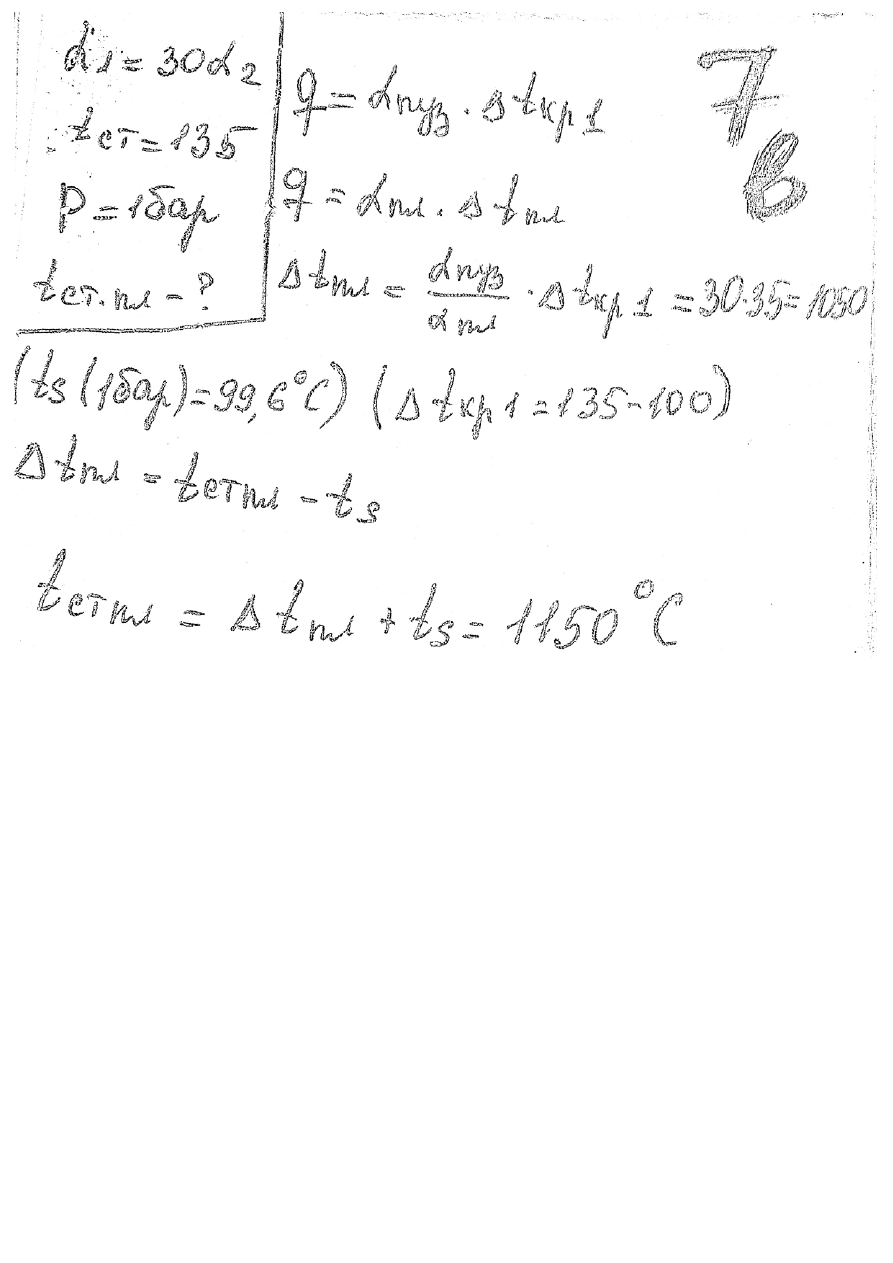 α1 = 30α2
tст = 135
P = 1бар
tст.пл - ?
q = αпуз · Δtкр1
q = αпл · Δtпл
Δtпл = αпуз/αпл · Δtкр1 = 30·35 = 1050
7
в
(ts (1бар) = 99,6°C) (Δtкр1 = 135-100)
Δtпл = tстпл - ts
tстпл = Δtпл + ts = 1150°C